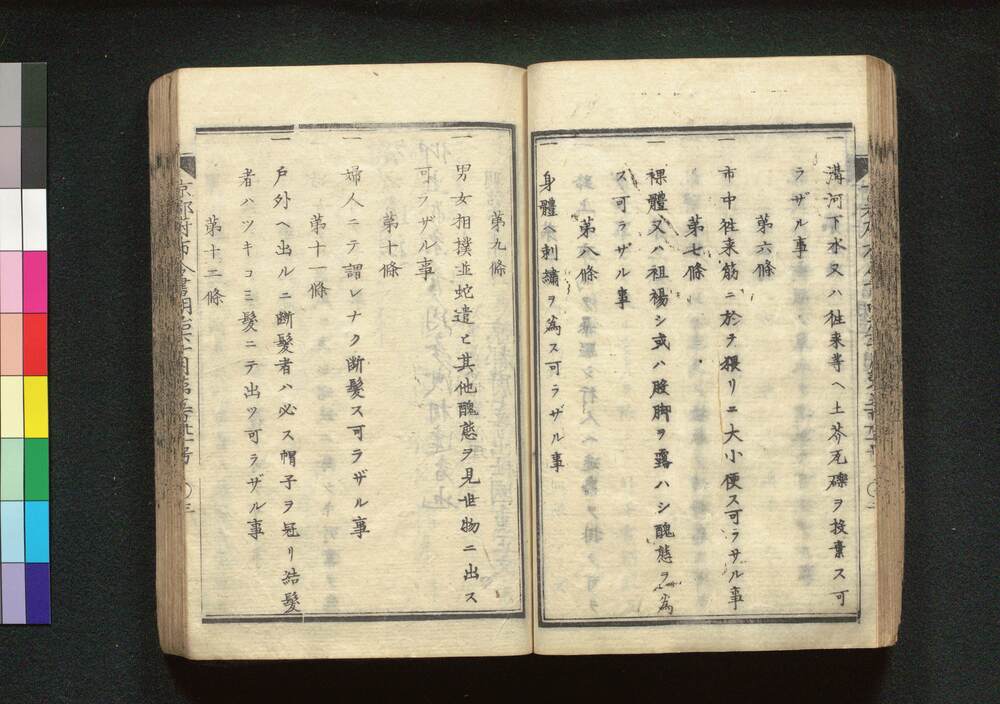 一 溝河下水又ハ往来等ヘ土芥瓦礫ヲ投棄ス可
ラザル事
第六條
一 市中往来筋ニ於テ猥リニ大小便ス可ラサル事
第七條
一 裸體又ハ袒裼シ或ハ股脚ヲ露ハシ醜態ヲ為
ス可ラザル事
第八條
一 身體ヘ刺繍ヲ為ス可ラザル事
第九條
一 男女相撲並蛇遣ヒ其他醜態ヲ見世物ニ出ス
可ラザル事
第十條
一 婦人ニテ謂レナク断髪ス可ラザル事
第十一條
一 戸外ヘ出ルニ断髪者ハ必ス帽子ヲ冠リ結髪
者ハツキコミ髪ニテ出ツ可ラザル事
第十二條
京都府布令書明治